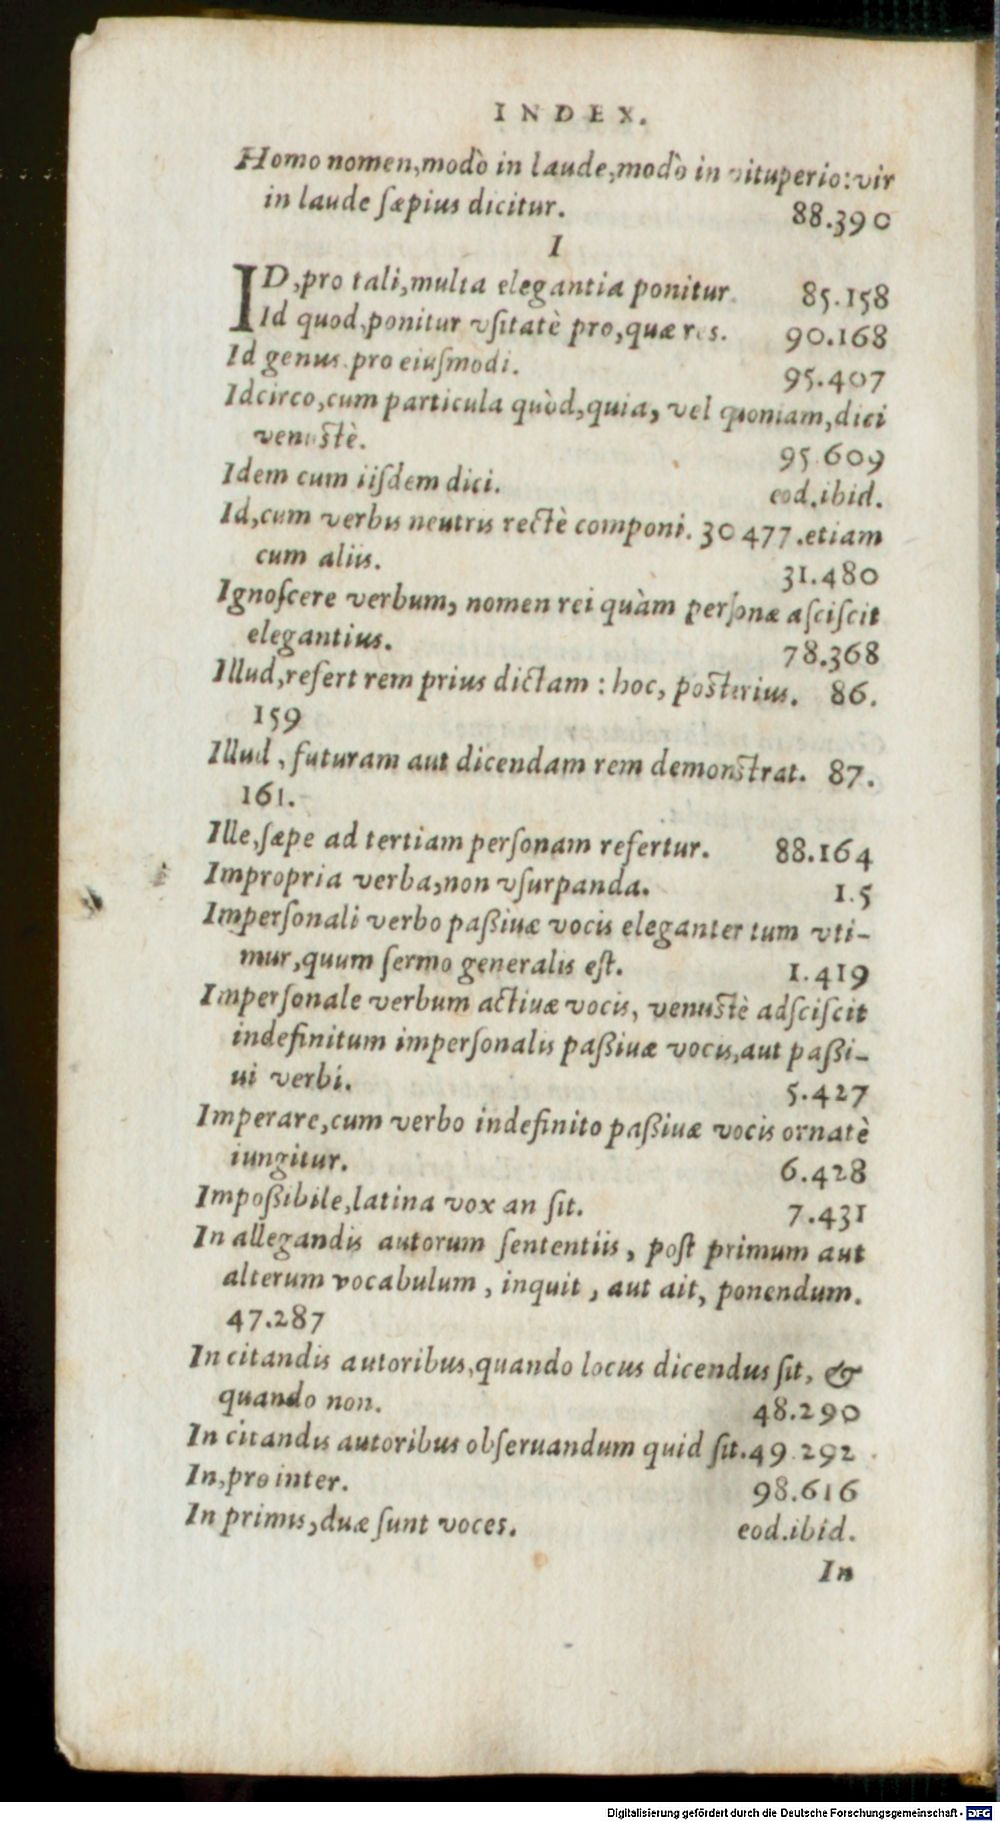 INDEX.
Homo nomen,modò in laude,modò in vituperio:vir
in laude ſæpius dicitur. 88.390
I
ID,pro tali,multa elegantia ponitur 85.158
Id quod,ponitur vſitatè pro,quæ res. 90.168
Id genus pro eiuſmodi. 95.407
Idcirco,cum particula quòd,quia, vel quoniam,dici
venustè. 95.609
Idem cum iiſdem dici. eod.ibid.
Id,cum verbis neutris rectè componi. 30 477.etiam
cum aliis. 31.480
Ignoſcere verbum, nomen rei quàm perſonæ aſciſcit
elegantius. 78.368
Illud,refert rem prius dictam : hoc, posterius. 86.
159
Illud , futuram aut dicendam rem demonstrat. 87.
161.
Ille,ſæpe ad tertiam perſonam refertur. 88.164
Impropria verba,non vſurpanda. 1.5
Imperſonali verbo paßiuæ vocis eleganter tum vti-
mur,quum ſermo generalis eſt. 1.419
Imperſonale verbum actiuæ vocis, venustè adſciſcit
indefinitum imperſonalis paßiuæ vocis,aut paßi-
ui verbi. 5.427
Imperare,cum verbo indefinito paßiuæ vocis ornatè
iungitur. 6.428
Impoßibile,latina vox an ſit. 7.431
In allegandis autorum ſententiis, poſt primum aut
alterum vocabulum , inquit , aut ait, ponendum.
47.287
In citandis autoribus,quando locus dicendus ſit, &
quando non. 48.290
In citandis autoribus obſeruandum quid ſit.49.292
In,pro inter. 98.616
In primis,duæ ſunt voces. eod.ibid.
In
Digitalisierung gefördert durch die Deutsche Forschungsgemeinschaft - DFG